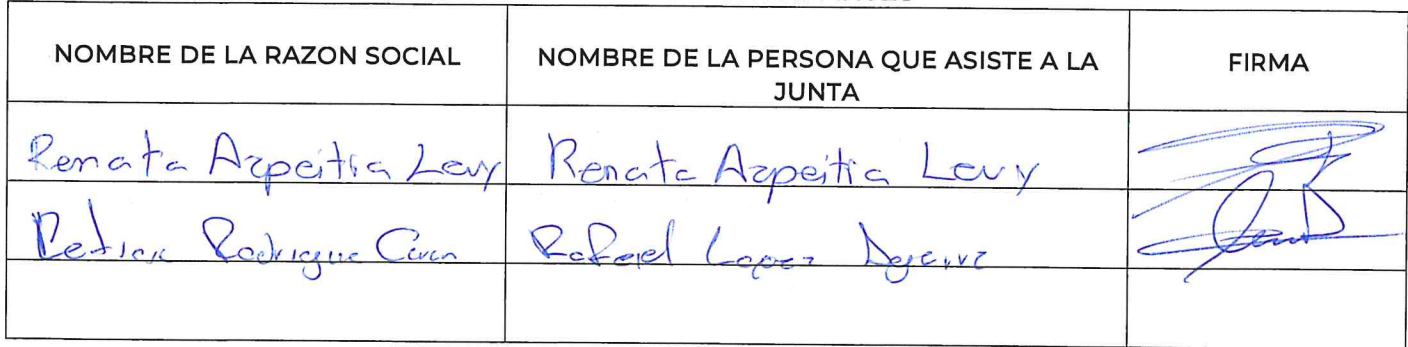 NOMBRE DE LA RAZON SOCIAL
NOMBRE DE LA PERSONA QUE ASISTE A LA
JUNTA
FIRMA
Renata Azpeitia Levy
Renata Azpeitia Levy
Rafael Lopez